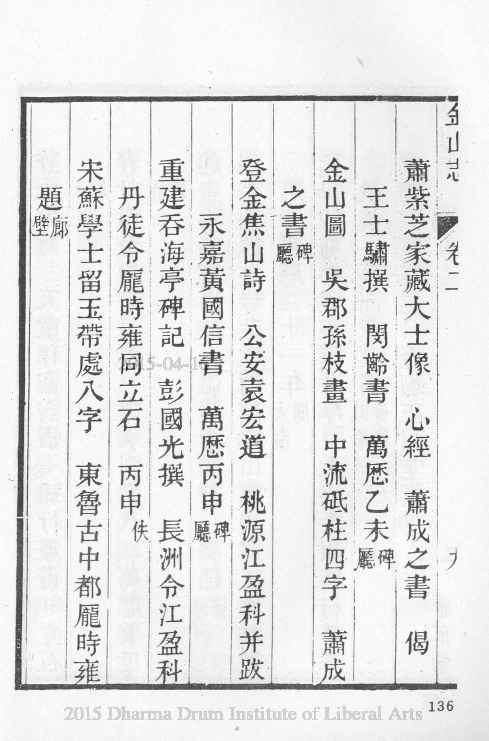 金山志 卷二 九
蕭紫芝家藏大士像 心經 蕭成之書 偈
王士驌撰 閔齡書 萬歷乙未碑廳
金山圖 吳郡孫枝畫 中流砥柱四字 蕭成
之書碑廳
登金焦山詩 公安袁宏道 桃源江盈科并跋
永嘉黃國信書 萬歷丙申碑廳
重建吞海亭碑記 彭國光撰 長洲令江盈科
丹徒令龎時雍同立石 丙申佚
宋蘇學士留玉帶處八字 東魯古中都龎時雍
題廊壁
136
2015 Dharma Drum Institute of Liberal Arts